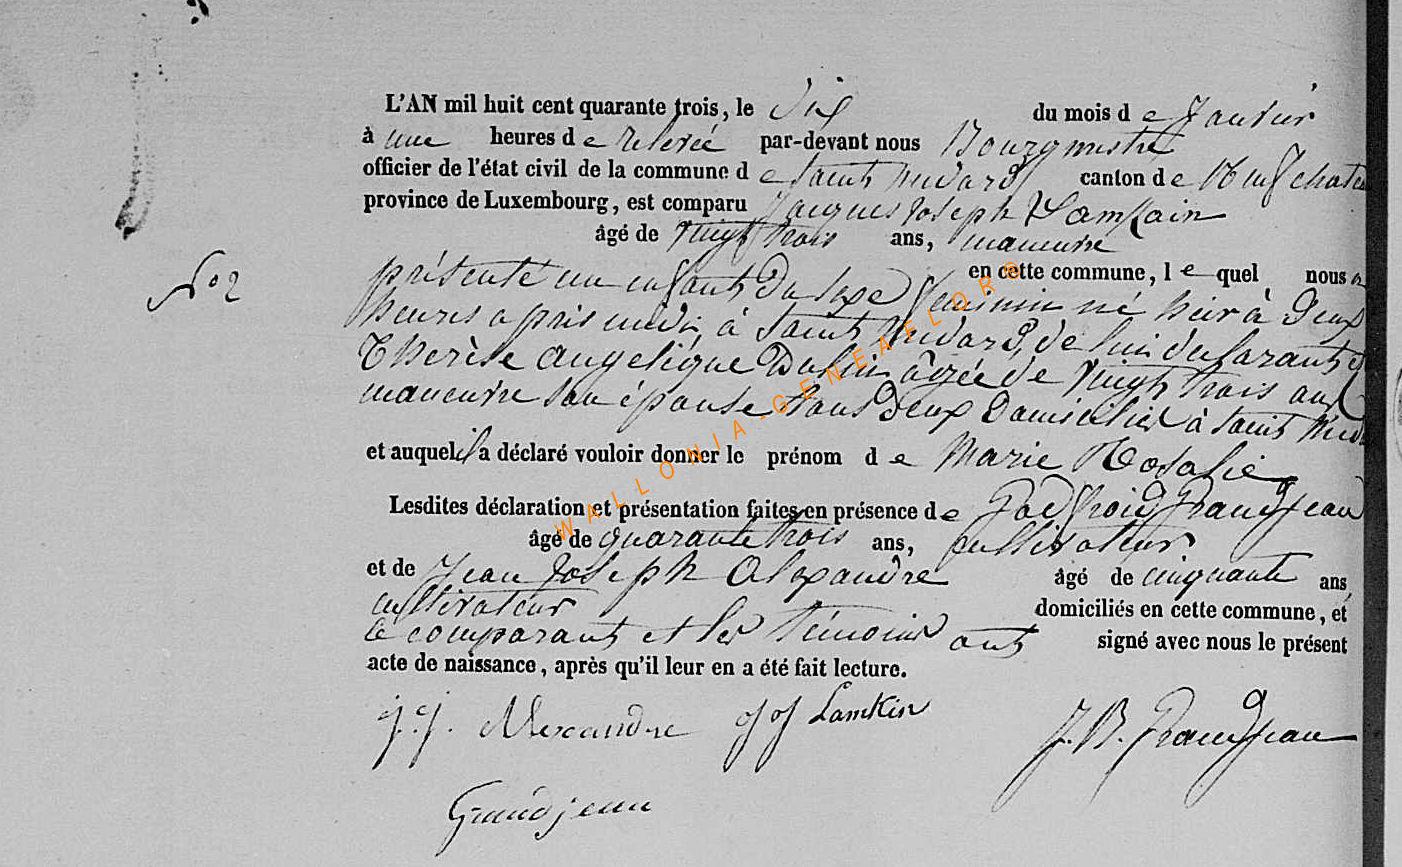 L'AN mil huit cent quarante trois, le Six du mois de Janvier
à une heures de relevée par-devant nous Bourgmestre
officier de l'état civil de la commune de Saint Médard canton de Neufchateau
province de Luxembourg, est comparu Jacques Joseph Lamkain
âgé de vingt trois ans, manœuvre
No 2
en cette commune, lequel nous a
présenté un enfant du sexe feminin né hier à deux
heures après midi, à Saint Médard, de lui déclarant et
Therèse Angelique agée de vingt trois ans
manœuvre son épouse tous deux domiciliés à Saint Méd
et auquel il a déclaré vouloir donner le prénom de Marie Rosalie
Lesdites déclaration et présentation faites en présence de Godfroid Grandjean
âgé de quarante trois ans, cultivateur.
et de Jean Joseph Alexandre âgé de cinquante ans
cultivateur domiciliés en cette commune, et
le comparant et les témoins ont signé avec nous le présent
acte de naissance, après qu'il leur en a été fait lecture.
j. j. Alexandre J J Lamkin J. B. Grandjean
Grandjean
WALLONIA-GENEAFLOR®